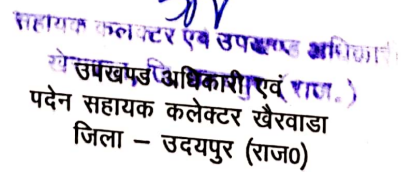 सहायक कलेक्टर एवं उपखण्ड अधिकारी
उपखण्ड अधिकारी एवं (राज.)
पदेन सहायक कलेक्टर खैरवाडा
जिला – उदयपुर (राज0)